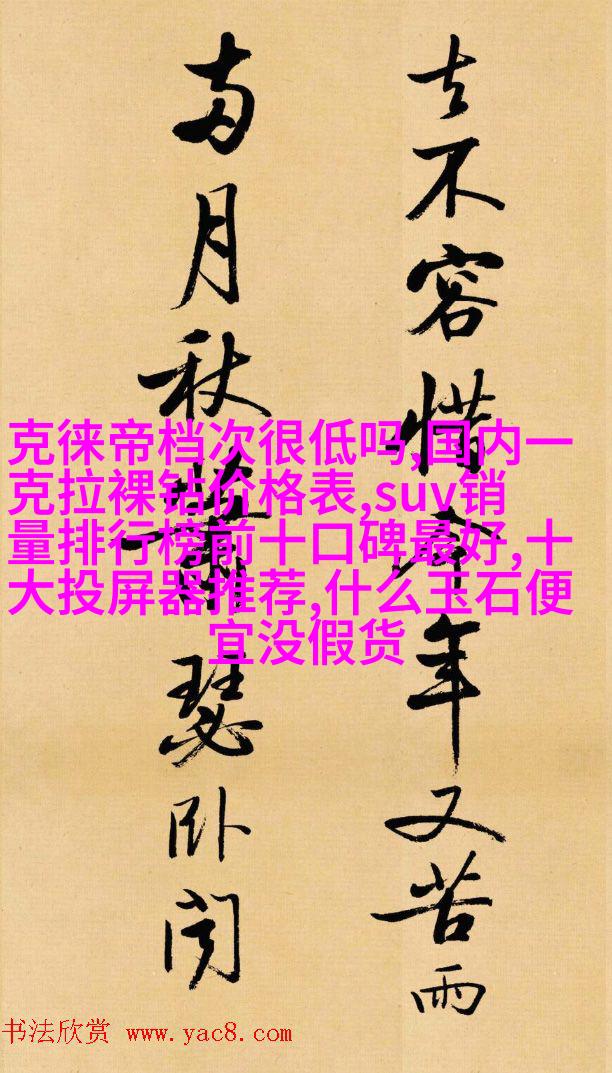 去不容惜今年又苦雨
两月秋萧瑟卧闻
克徕帝档次很低吗,国内一
克拉裸钻价格表,suv销
量排行榜前十口碑最好,十
大投屏器推荐,什么玉石便
宜没假货
书法欣赏 www.yac8.com